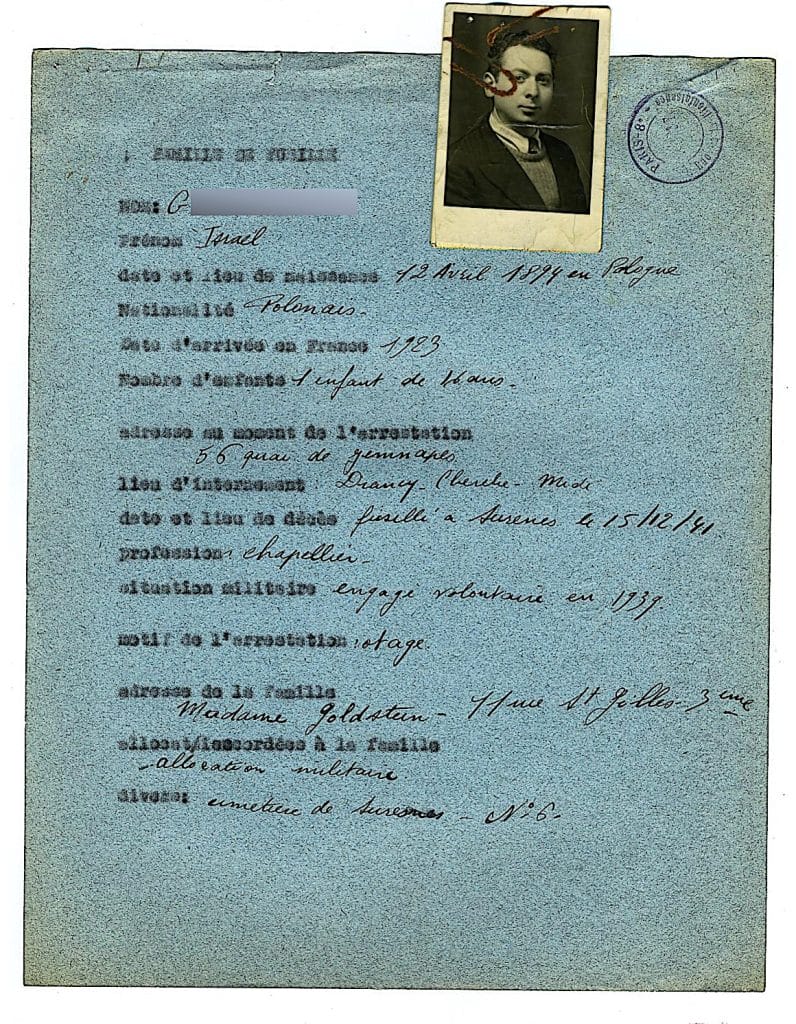 FAMILLE DE FUSILLE
NOM: G
Prénom Israël
date et lieu de naissance 12 Avril 1894 en Pologne
Nationalité Polonais-
Date d'arrivée en France 1923
Nombre d'enfants 1 enfant de 16 ans-
adresse au moment de l'arrestation
56 quai de gemnapes
lieu d'internement : Drancy- Cherche- Midi
date et lieu de décès fusillé à Suresnes le 15/12/41
profession: chapellier-
situation militaire engagé volontaire en 1939.
motif de l'arrestation: otage.
adresse de la famille
Madame Goldstein- 11 rue St Gilles- 3eme
allocat/accordées à la famille
-allocation militaire
divers: cimetière de Suresnes - N° 6-
PARIS-8e